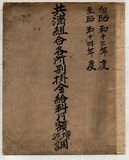 自昭和十三年度
至昭和十四年度
共済組合各所別掛金給料月額
調